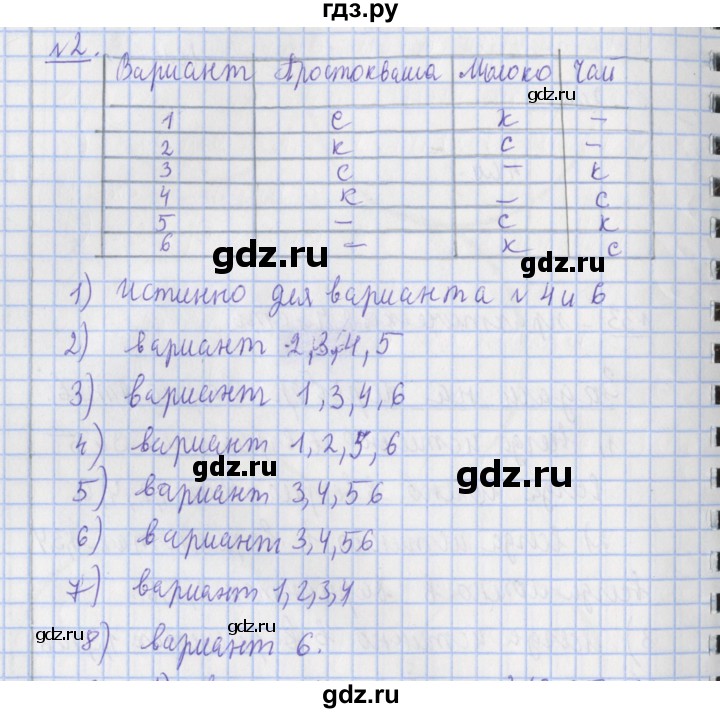 гдз.ру
N2.
Вариант Простокваша Молоко Чай
1 с к –
2 к с –
3 с – к
4 к – с
5 – с к
6 – к с
gdz.ru gdz.ru
1) Истинно для варианта N 4 и 6
2) вариант 2,3,4,5
3) вариант 1,3,4,6
4) вариант 1,2,5,6
gdz.ru gdz.ru
5) вариант 3,4,56
6) вариант 3,4,56
7) вариант 1,2,3,4
gdz.ru gdz.ru
8) вариант 6.
gdz.ru